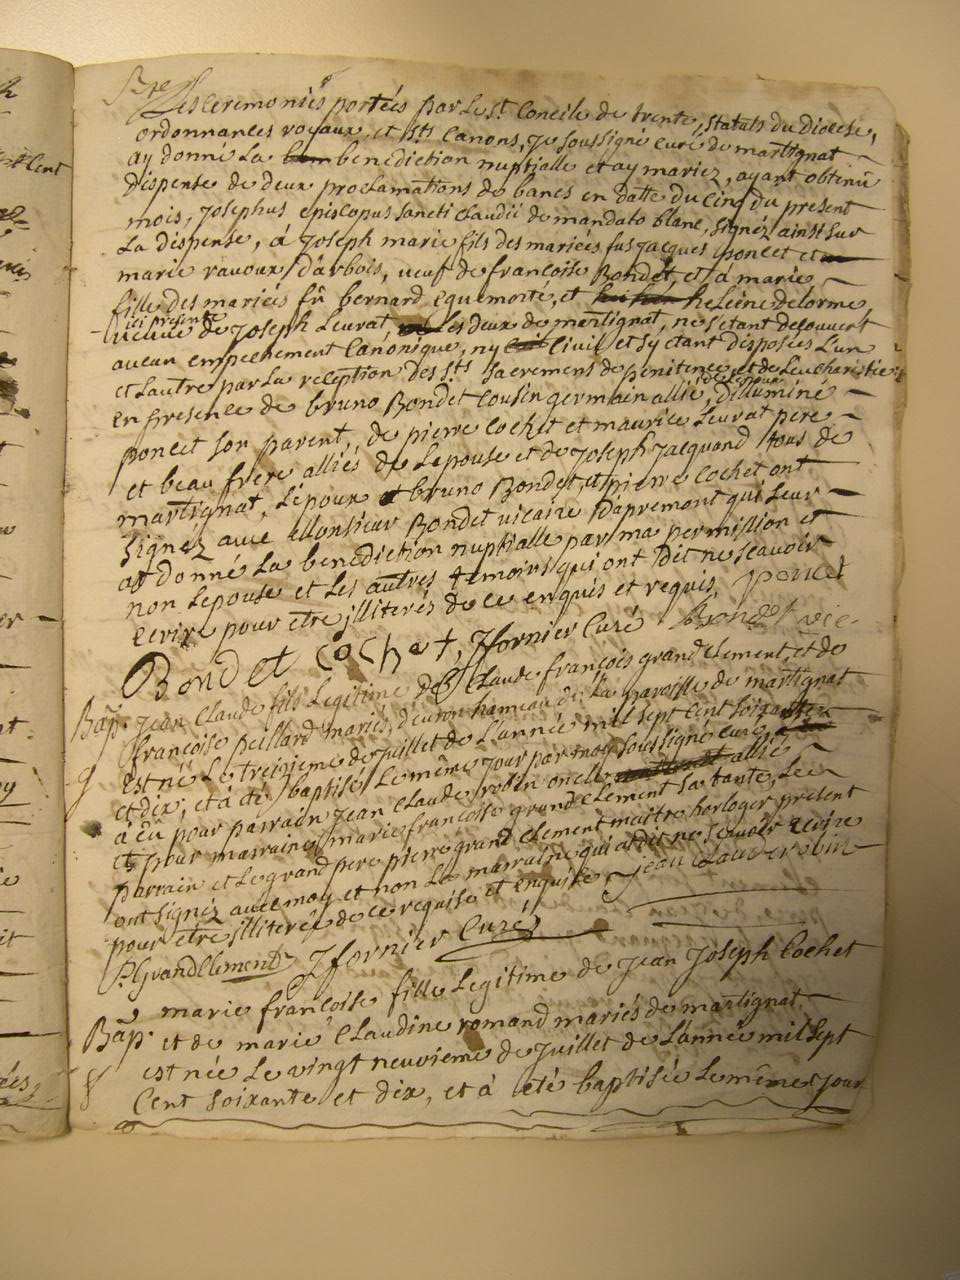 Les Ceremonies portées par le St. Concile de trente, statuts du Diocese,
ordonnances royaux, et Sts. Canons, Je soussigné curé de martignat
ay donné La benediction nuptialle et ay mariez, ayant obtenu
dispense de deux proclamations de bancs en datte du cinq du present
mois, Josephus episcopus sancti claudii de mandato blanc, signez ainsi sur
La dispense, à Joseph marie fils des mariées fus Jacques poncet et
marie ravoux d'arbois, veuf de francoise Bondet, et à marie
fille des mariés fû bernard Equemorté, et heleine delorme,
ici presente
veuve de Joseph Levrat, Les deux de martignat, ne s'etant decouvert
aucun empeechement Canonique, ny Civil et s'y etant disposées L'un
et L'autre par La reception des Sts. Sacremens de penitence, et de Leucharistie
en presence de bruno Bondet Cousin germain allié, d'illuminé
poncet son parent, de pierre cochet et maurice Levrat pere
et beau frere alliés de Lepouse et de Joseph Jacquand tous de
martignat, L'epoux et bruno Bondet, et pierre cochet ont
signez avec Monsieur Bondet vicaire d'apremont qui leur
at donné La benediction nuptialle par ma permission et
non Lepouse et Les autres temoins qui ont Dit ne scavoir
ecrire pour etre illiterés de ce enquis et requis, poncet
Bondet cochet, Jfornier Curé Bondet vic.
Bap. Jean Claude fils Legitime de Claude françois grandclement, et de
francoise peillard mariés, d'evron hameau de La paroisse de martignat
Est né Le treizieme de Juillet de L'année mil sept cent soixante
et dix, et à eté baptisé Le même jour par moy soussigné curé,
à eû pour parrain Jean Claude robin oncle allié
et pour marraine marie francoise grandclement sa tante, Le
parrain et Le grand pere pierre grandclement maitre horloger present
ont signez avec moy et non La marraine qui at dit ne scavoir ecrire
pour etre illiterée de ce requise et enquise Jean Claude robin
P. Grandclement Jfornier Curé
marie francoise fille Legitime de Jean Joseph Cochet
Bap. et de marie Claudine romand mariés de martignat
est née Le vingt neuvieme de Juillet de L'année mil sept
Cent soixante et dix, et à eté baptisée Le même jour